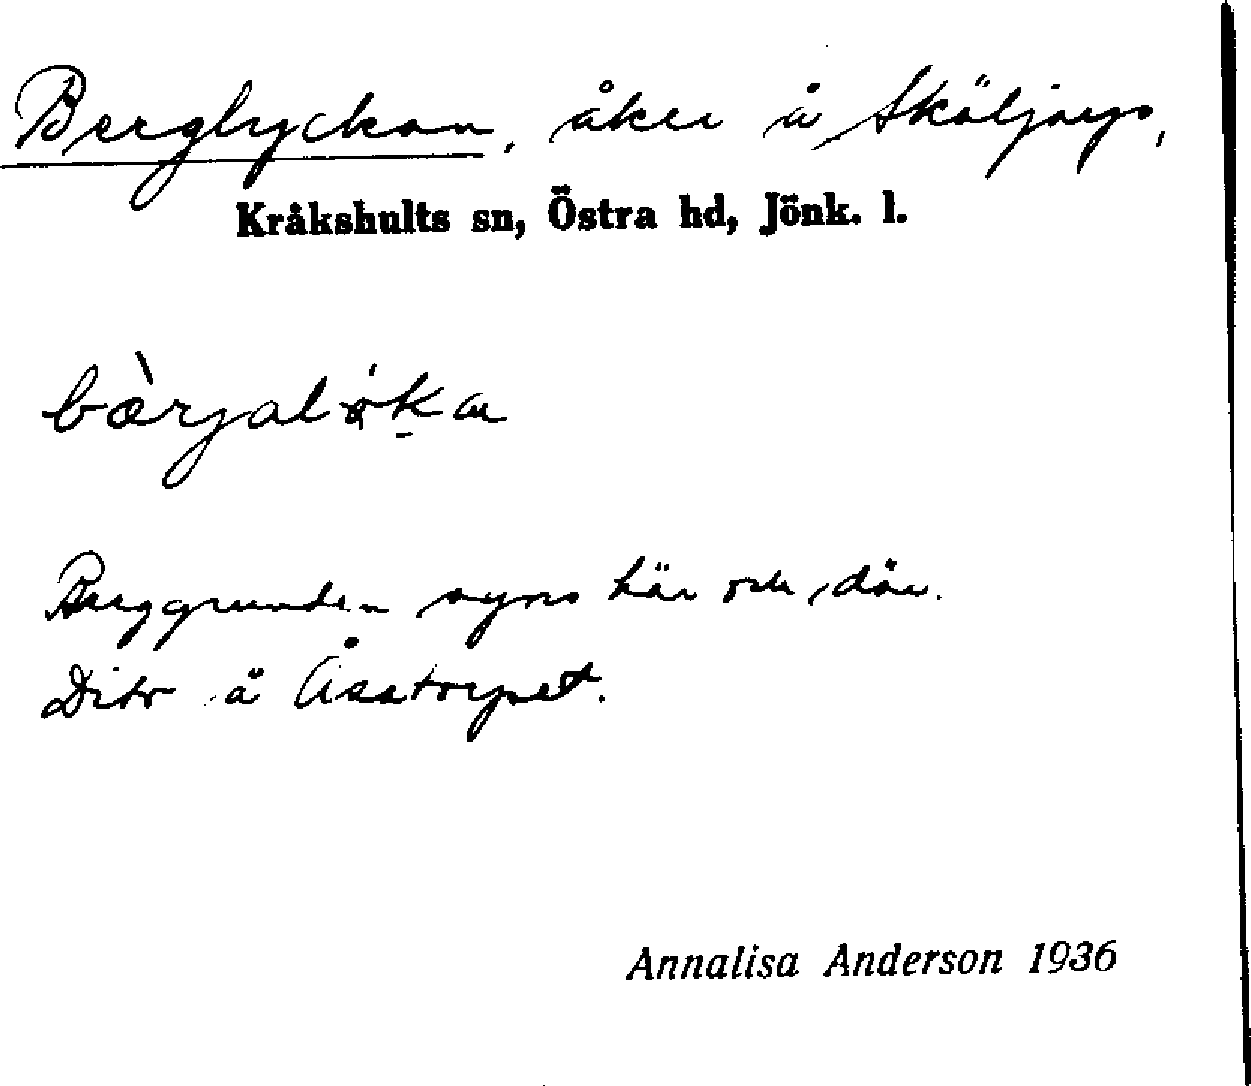 Berglyckan, åker å Sköljarps,
Kråkshults sn, Östra hd, Jönk. l.
bæ̀rjaló̤ka
Berggrunden syns här och där.
Dito å Åsatorpet.
Annalisa Anderson 1936